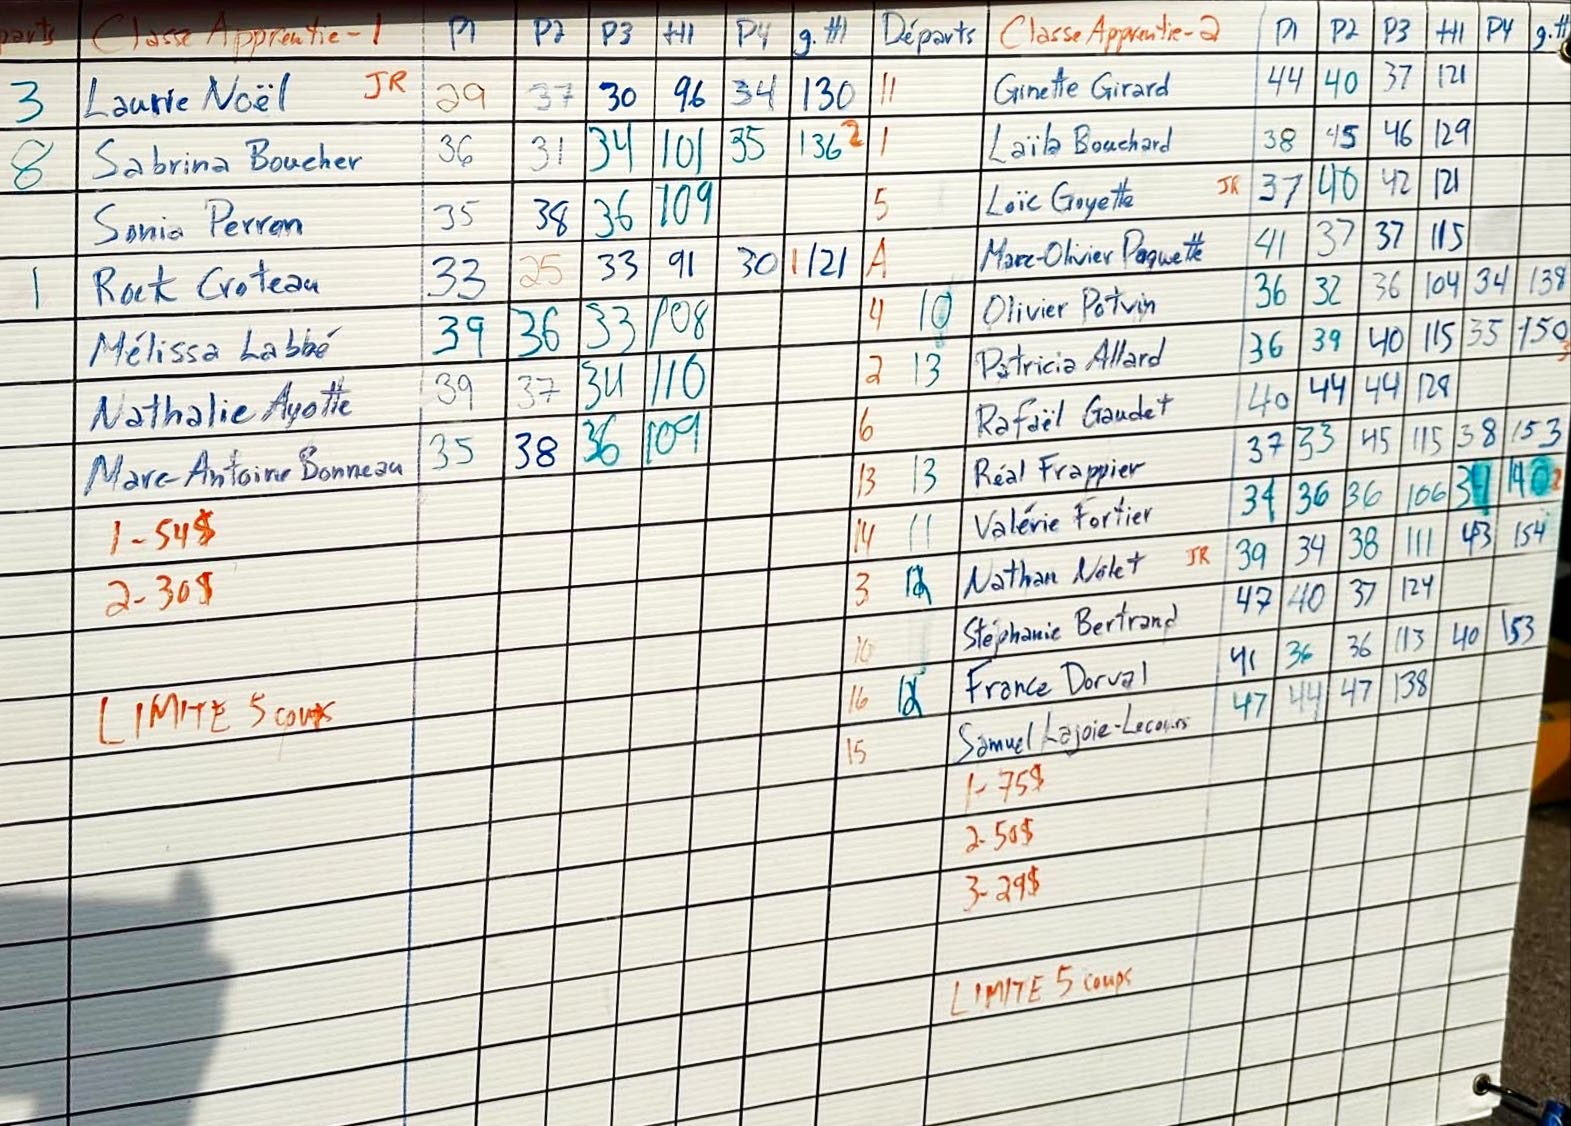 parts Classe Apprentie-1 P1 P2 P3 H1 P4 g.#1 Départs Classe Apprentie-2 P1 P2 P3 H1 P4 g.#
3 Laurie Noël JR 29 37 30 96 34 130 11 Ginette Girard 44 40 37 121
8 Sabrina Boucher 36 31 34 101 35 136 2 1 Laïla Bouchard 38 45 46 129
Sonia Perron 35 38 36 109 5 Loïc Goyette JR 37 40 42 121
1 Rock Croteau 33 25 33 91 30 1 121 A Marc-Olivier Paquette 41 37 37 115
Mélissa Labbé 39 36 33 108 4 10 Olivier Potvin 36 32 36 104 34 138
Nathalie Ayotte 39 37 34 110 2 13 Patricia Allard 36 39 40 115 35 150 3
Marc-Antoine Bonneau 35 38 36 109 6 Rafaël Gaudet 40 44 44 128
1-54$ 13 13 Réal Frappier 37 33 45 115 38 153
2-30$ 14 11 Valérie Fortier 34 36 36 106 34 140 2
3 12 Nathan Nolet JR 39 34 38 111 43 154
10 Stéphanie Bertrand 47 40 37 124
LIMITE 5 coups 16 12 France Dorval 41 36 36 113 40 153
15 Samuel Lajoie-Lecours 47 44 47 138
1-75$
2-50$
3-29$
LIMITE 5 coups